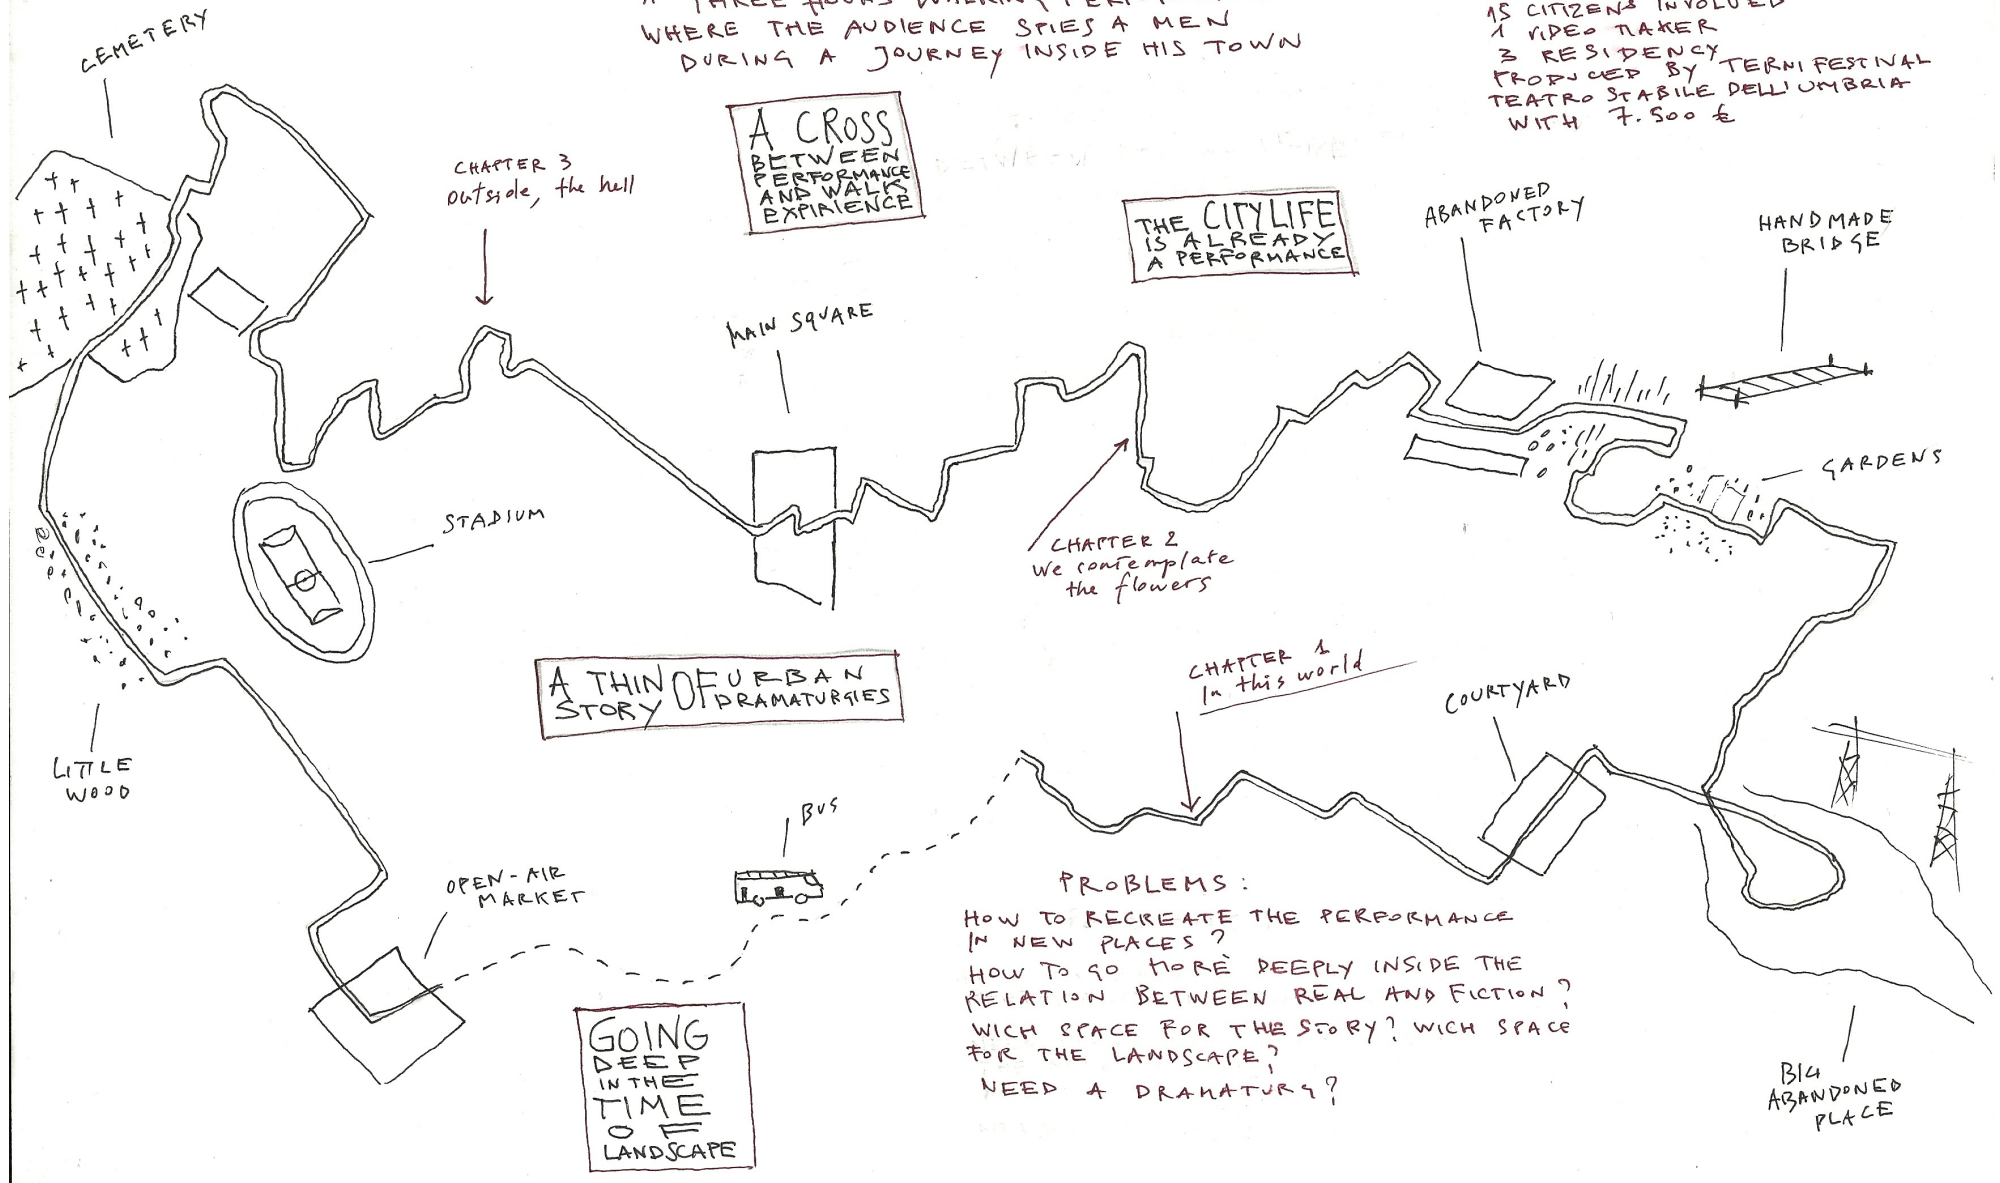 A THREE HOURS WALKING
WHERE THE AUDIENCE SPIES A MEN
DURING A JOURNEY INSIDE HIS TOWN
15 CITIZENS INVOLVED
1 VIDEO MAKER
3 RESIDENCY
PRODUCED BY TERNI FESTIVAL
TEATRO STABILE DELL'UMBRIA
WITH 7.500 €
CEMETERY
A CROSS
BETWEEN
PERFORMANCE
AND WALK
EXPIRIENCE
CHAPTER 3
outside, the hell
THE CITYLIFE
IS ALREADY
A PERFORMANCE
ABANDONED
FACTORY
HANDMADE
BRIDGE
MAIN SQUARE
GARDENS
STADIUM
CHAPTER 2
we contemplate
the flowers
A THIN STORY OF URBAN DRAMATURGIES
CHAPTER 1
In this world
COURTYARD
LITTLE
WOOD
BUS
OPEN-AIR
MARKET
PROBLEMS:
HOW TO RECREATE THE PERFORMANCE
IN NEW PLACES?
HOW TO GO MORE DEEPLY INSIDE THE
RELATION BETWEEN REAL AND FICTION?
WICH SPACE FOR THE STORY? WICH SPACE
FOR THE LANDSCAPE?
NEED A DRAMATURG?
GOING
DEEP
IN THE
TIME
OF
LANDSCAPE
BIG
ABANDONED
PLACE